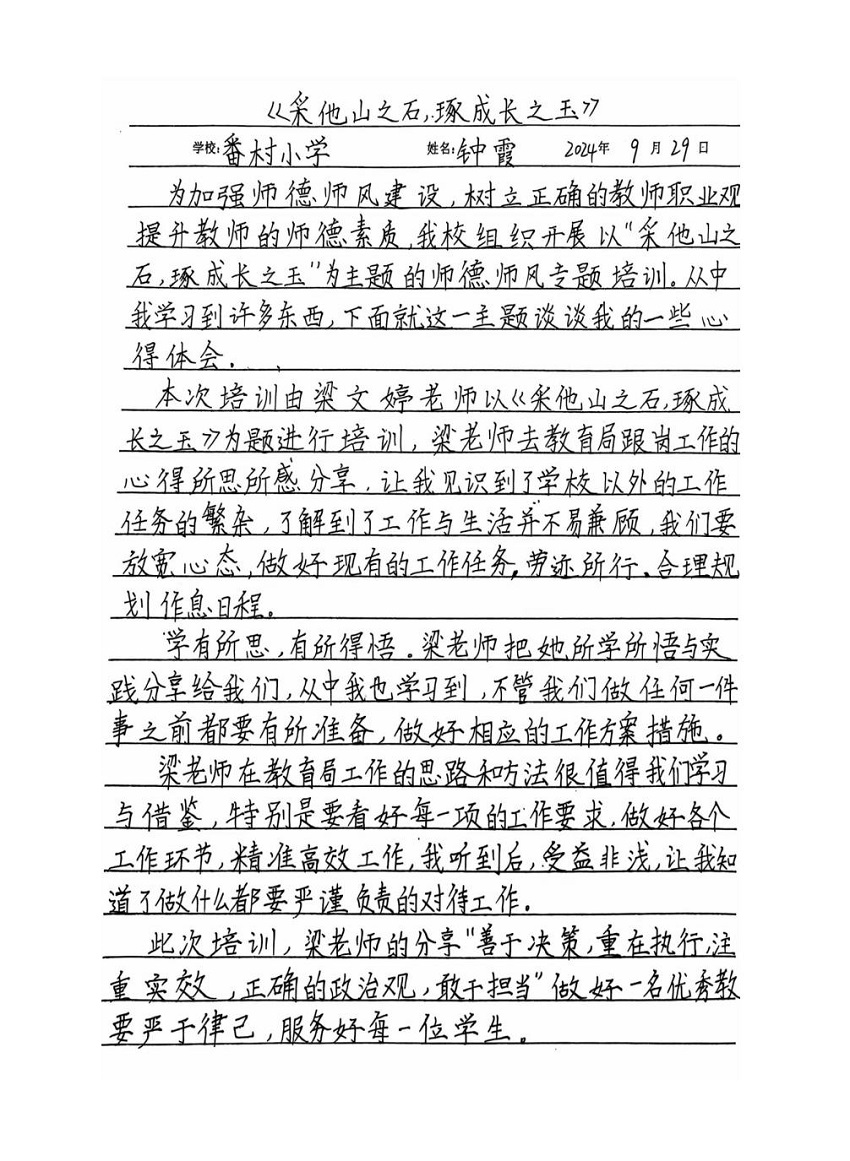 《采他山之石,琢成长之玉》
学校:番村小学 姓名:钟霞 2024年 9月29日
为加强师德师风建设,树立正确的教师职业观
提升教师的师德素质,我校组织开展以"采他山之
石,琢成长之玉"为主题的师德师风专题培训。从中
我学习到许多东西,下面就这一主题谈谈我的一些心
得体会.
本次培训由梁文婷老师以《采他山之石,琢成
长之玉》为题进行培训,梁老师去教育局跟岗工作的
心得所思所感分享,让我见识到了学校以外的工作
任务的繁杂,了解到了工作与生活并不易兼顾,我们要
放宽心态,做好现有的工作任务,劳迹所行、合理规
划作息日程。
学有所思,有所得悟.梁老师把她所学所悟与实
践分享给我们,从中我也学习到,不管我们做任何一件
事之前都要有所准备,做好相应的工作方案措施。
梁老师在教育局工作的思路和方法很值得我们学习
与借鉴,特别是要看好每一项的工作要求,做好各个
工作环节,精准高效工作,我听到后,受益非浅,让我知
道了做什么都要严谨负责的对待工作.
此次培训,梁老师的分享"善于决策,重在执行,注
重实效,正确的政治观,敢于担当"做好一名优秀教
要严于律己,服务好每一位学生。